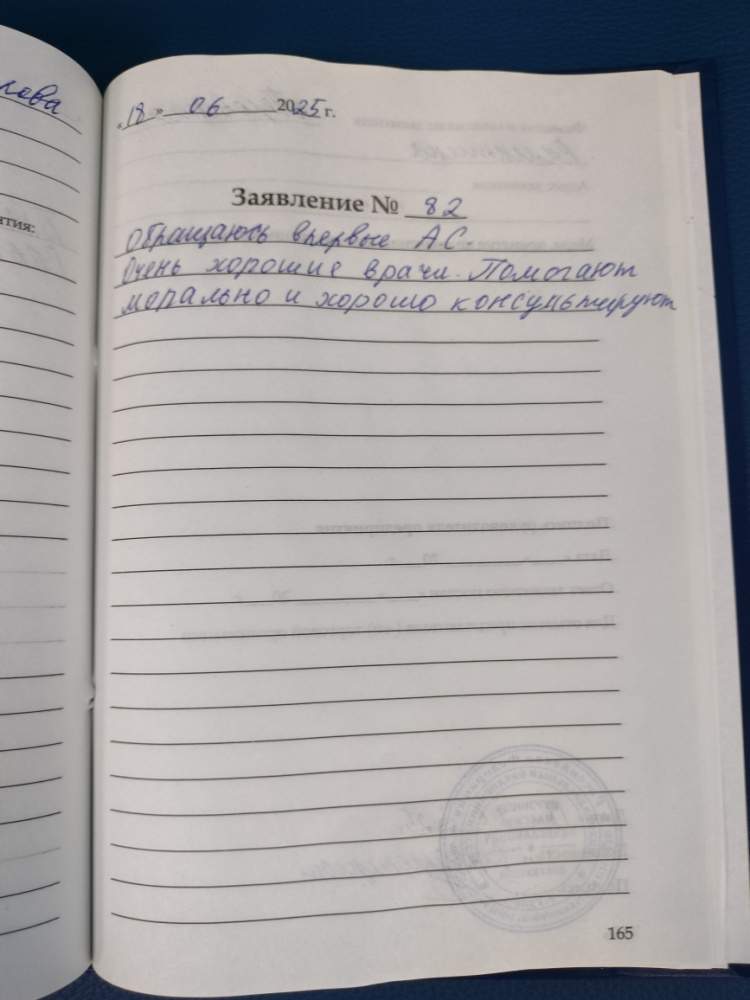 лова
ятия:
«18» 06 2025 г.
Заявление № 82
Обращаюсь впервые А.С.
Очень хорошие врачи. Помогают
морально и хорошо консультируют
165